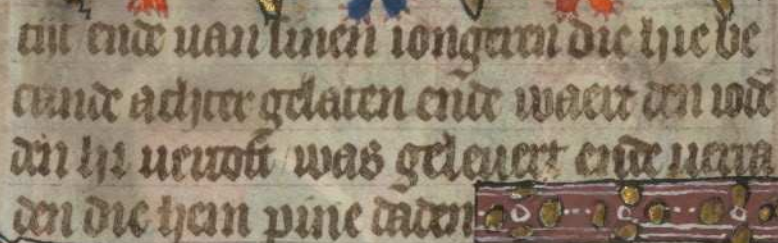 tijt ende uan sinen iongeren die hie be
cande achter gelaten ende waert den iodē
dan hi uercoft was geleuert ende uerra
den die hem pine daden